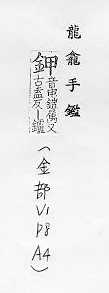 龍龕手鑑
鉀音甲鎧属又
鉀古盍反一鑪
(金部V1
P8
A4)